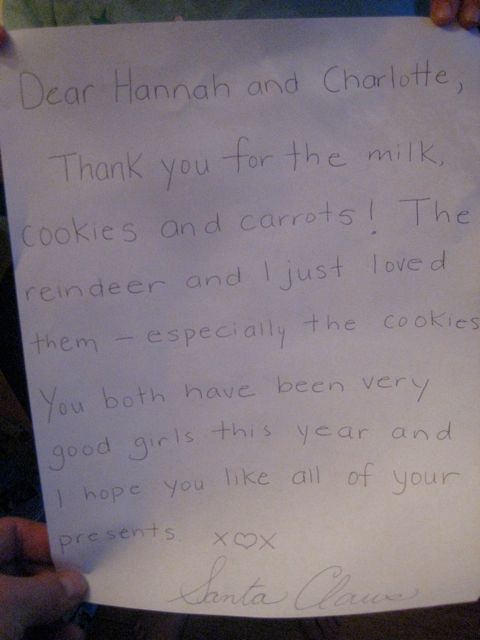 Dear Hannah and Charlotte,
Thank you for the milk,
cookies and carrots! The
reindeer and I just loved
them - especially the cookies
You both have been very
good girls this year and
I hope you like all of your
presents. x♡x
Santa Claus